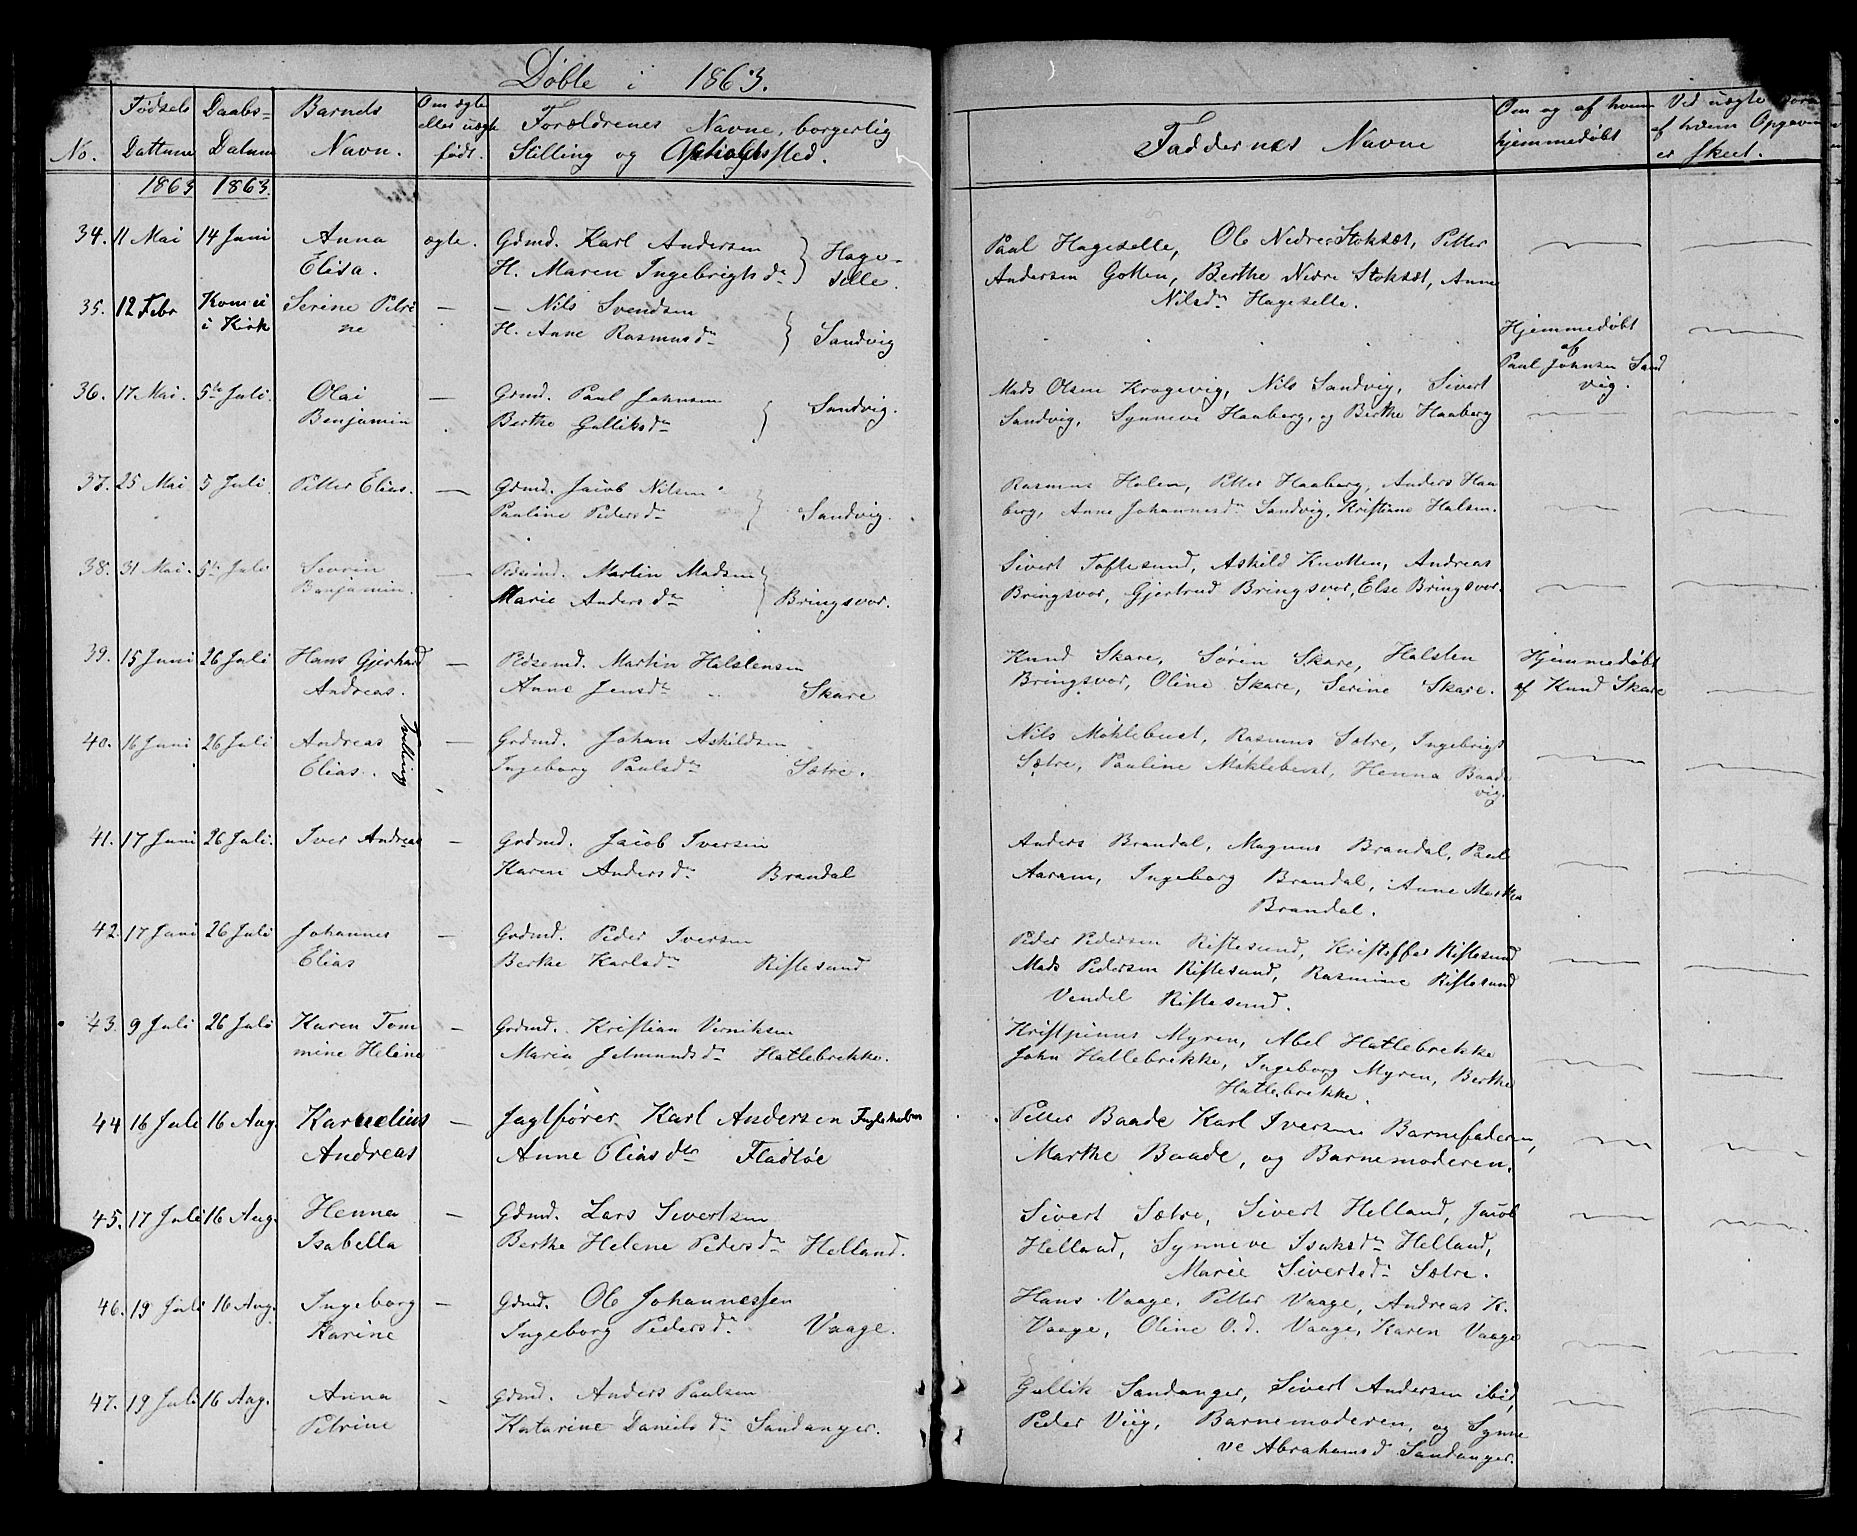 Døbte i 1863.
No. | Fødsels Dattum | Daabs- Datum | Barnets Navn. | Om ægte eller uægte født. | Forældrenes Navne, borgerlig Stilling og Opholdssted. | Faddernes Navne | Om og af hvem hjemmedøbt | Ved uægte af hvem Opgaven er skeet.
1863 1863.
34. 11 Mai 14 Juni Anna ægte. Gdmd. Karl Andersen Hage- Paul Hageselle, Ole Nedre Stoksæt, Petter
Elisa. H. Maren Ingebrigtsdr selle. Andersen Gotten, Berthe Nedre Stoksæt, Anne
Nilsdr Hageselle.
35. 12 Febr Kom ei Serine Petri — — Nils Svendsen Hjemmedøbt
i Kirk ne H. Anne Rasmusdr Sandvig af
Paul Johnsen Sand
vig.
36. 17 Mai. 5te Juli. Olai — Grmd. Paul Johnsen Sandvig. Mads Olsen Kragevig, Nils Sandvig, Sivert
Benjamin Berthe Gulliksdr Sandvig, Synneve Haaberg, og Berthe Haaberg
37. 25 Mai 5 Juli. Petter Elias. — Gdmd. Jacob Nilsen Rasmus Holen, Petter Haaberg, Anders Haa
Pauline Pedersdr Sandvig. berg, Anne Johannesdr Sandvig, Kristiane Halsen.
38. 31 Mai. 5te Juli Severin — Martin Madsen Sivert Toftesund, Askild Knotten, Andreas
Benjamin. Marie Andersdr Bringsvor. Bringsvor, Gjertrud Bringsvor, Else Bringsvor.
39. 15 Juni 26 Juli Hans Gjerhard — Martin Halstensen Knud Skare, Søren Skare, Halsten Hjemmedøbt
Andreas. Anne Jensdr Skare Bringsvor, Oline Skare, Serine Skare. af Knud Skare
40. 16 Juni 26 Juli Andreas Tvilling — Grdmd. Johan Askildsen Nils Møklebust, Rasmus Sætre, Ingebrigt
Elias. Ingeborg Paulsdr Sætre. Sætre, Pauline Møklebust, Henna Baade
vig.
41. 17 Juni 26 Juli. Iver Andreas — Grdmd. Jacob Iversen Anders Brandal, Magnus Brandal, Paul
Karen Andersdr Brandal Aaram, Ingeborg Brandal, Anne Marthe
Brandal.
42. 17 Juni 26 Juli Johannes — Grdmd. Peder Iversen Peder Pedersen Riftesund, Kristoffer Riftesund
Elias Berthe Karlsdr Riftesund Mads Pedersen Riftesund, Rasmine Riftesund
Vendel Riftesund.
43. 9 Juli 26 Juli Karen Tom — Grdmd. Kristian Verniksen Kristpinus Myren, Abel Hatlebrekke
mine Heline Maria Jetmundsdr Hatlebrekke. John Hatlebrekke, Ingeborg Myren, Berthe
Hatlebrekke.
44 16 Juli 16 Aug. Karnelius — Jagtfører Karl Andersen Petter Baade Karl Iversen Barnefaderen,
Andreas Anne Eliasdtr Fladtøe Marthe Baade, og Barnemoderen.
45. 17 Juli 16 Aug. Henna — Gdmd. Lars Sivertsen Sivert Sætre, Sivert Helland, Jacob
Isabella Berthe Helene Pedersdr Helland. Helland, Synneve Isaksdr Helland,
Marie Sivertsdr Sætre.
46. 19 Juli 16 Aug. Ingeborg — Gdmd. Ole Johannessen Hans Vaage, Petter Vaage, Andreas K.
Karine Ingeborg Pedersdr Vaage. Vaage, Oline O.d. Vaage, Karen Vaage
47. 19 Juli 16 Aug. Anna - Gdmd. Anders Paulsen Gullik Sandanger, Sivert Andersen ibid,
Petrine Katarine Danielsdr Sandanger. Peder Viig, Barnemoderen, og Synne
ve Abrahamsd Sandanger.